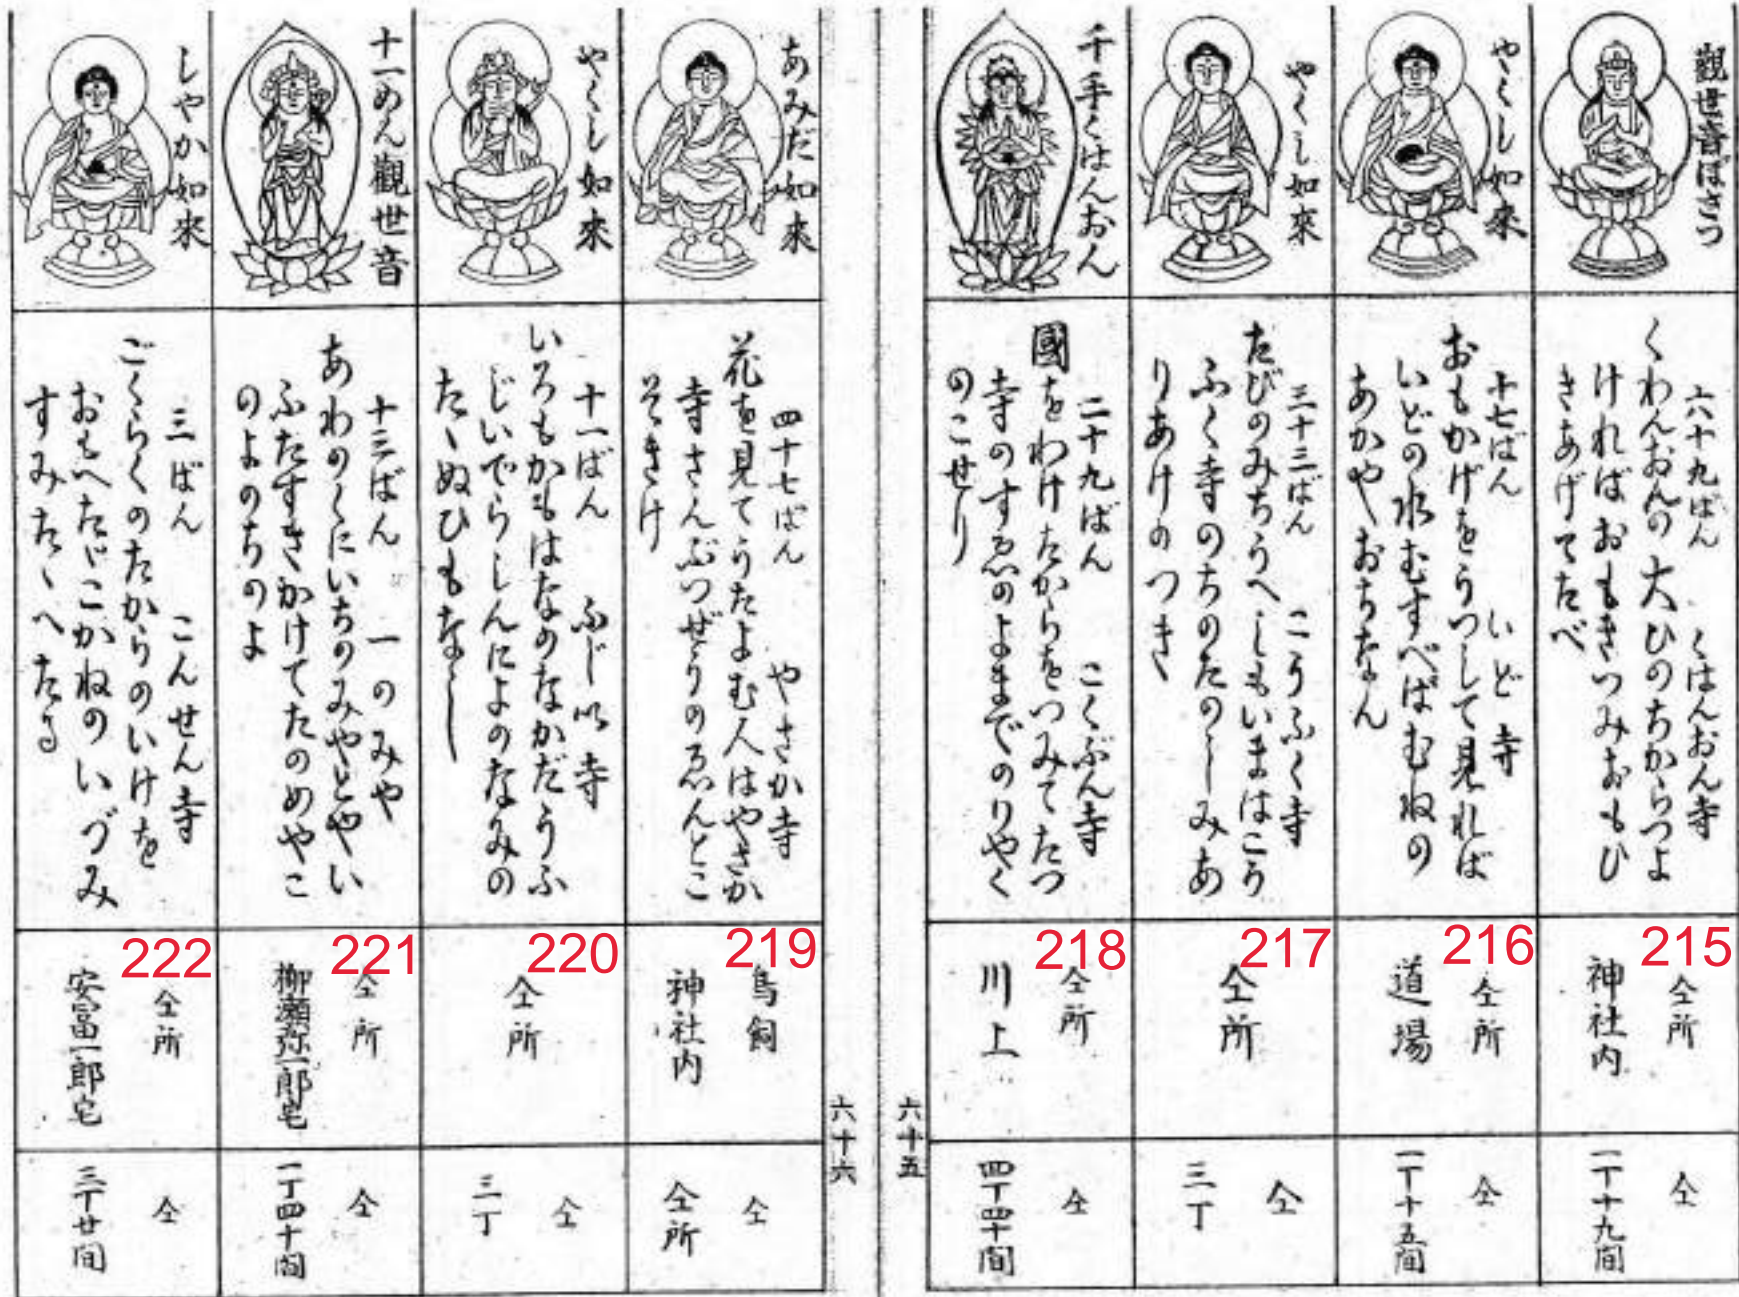 觀世音ぼさつ
六十九ばん　くはんおん寺
くわんおんの大ひのちからつよ
ければおもきつみおもひ
きあげてたべ
215
仝所
神社内
仝
一丁十九間
やくし如來
十七ばん　いど寺
おもかげをうつして見れば
いどの水むすべばむねの
あかやおちなん
216
仝所
道場
仝
一丁十五間
やくし如來
三十三ばん　こうふく寺
たびのみちうへしもいまはこう
ふく寺のちのたのしみあ
りあけのつき
217
仝所
仝
三丁
千手くはんおん
二十九ばん　こくぶん寺
國をわけたからをつみてたつ
寺のすゑのよまでのりやく
のこせり
218
仝所
川上
仝
四丁四十間
六十五
あみだ如來
四十七ばん　やさか寺
花を見てうたよむ人はやさか
寺さんぶつぜうのゑんとこ
そきけ
219
鳥飼
神社内
仝
仝所
やくし如來
十一ばん　ふじ井寺
いろもかもはなのなかだうふ
じいでらしんによのなみの
たゝぬひもなし
220
仝所
仝
三丁
十一めん觀世音
十三ばん　一のみや
あわのくにいちのみやとやい
ふたすきかけてたのめやこ
のよのちのよ
221
仝所
柳瀬弥一郎宅
仝
一丁四十間
しやか如來
三ばん　こんせん寺
ごくらくのたからのいけを
おもへたゞこがねのいづみ
すみたゝへたる
222
仝所
安富一郎宅
仝
三丁廿間
六十六